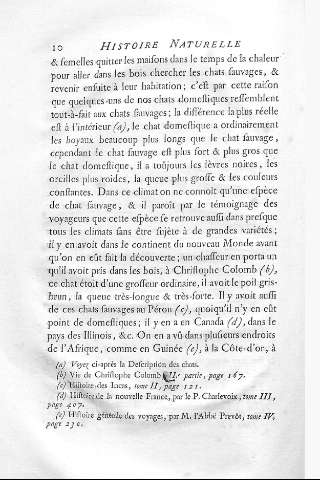 10 HISTOIRE NATURELLE
& femelles quitter les maiſons dans le temps de la chaleur
pour aller dans les bois chercher les chats ſauvages, &
revenir enſuite à leur habitation; c'eſt par cette raiſon
que quelques-uns de nos chats domeſtiques reſſemblent
tout-à-fait aux chats ſauvages; la différence la plus réelle
eſt à l'intérieur (a), le chat domeſtique a ordinairement
les boyaux beaucoup plus longs que le chat ſauvage,
cependant le chat ſauvage eſt plus fort & plus gros que
le chat domeſtique, il a toûjours les lèvres noires, les
oreilles plus roides, la queue plus groſſe & les couleurs
conſtantes. Dans ce climat on ne connoît qu'une eſpèce
de chat ſauvage, & il paroît par le témoignage des
voyageurs que cette eſpèce ſe retrouve auſſi dans preſque
tous les climats ſans être ſujète à de grandes variétés;
il y en avoit dans le continent du nouveau Monde avant
qu'on en eût fait la découverte; un chaſſeur en porta un
qu'il avoit pris dans les bois, à Chriſtophe Colomb (b),
ce chat étoit d'une groſſeur ordinaire, il avoit le poil gris-
brun, la queue très-longue & très-forte. Il y avoit auſſi
de ces chats ſauvages au Pérou (c), quoiqu'il n'y en eût
point de domeſtiques; il y en a en Canada (d), dans le
pays des Illinois, &c. On en a vû dans pluſieurs endroits
de l'Afrique, comme en Guinée (e), à la Côte-d'or, à
(a) Voyez ci-après la Deſcription des chats.
(b) Vie de Chriſtophe Colomb, II.e partie, page 167.
(c) Hiſtoire des Incas, tome II, page 121.
(d) Hiſtoire de la nouvelle France, par le P. Charlevoix, tome III,
page 407.
(e) Hiſtoire générale des voyages, par M. l'Abbé Prevôt, tome IV,
page 230.